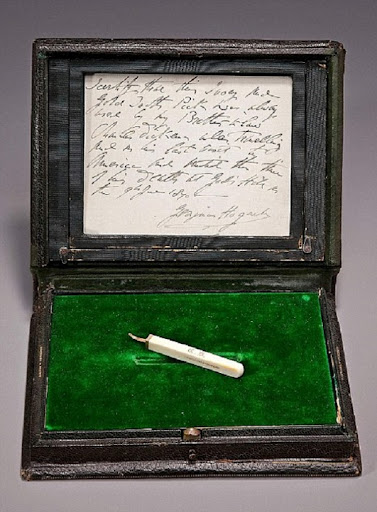 I certify that this Ivory and
Gold Tooth Pick was always
used by my Brother in law
Charles Dickens when travelling
and on his last
America and until the time
of his death at Gad's Hill on
the 9th of June 1870
Georgina Hogarth